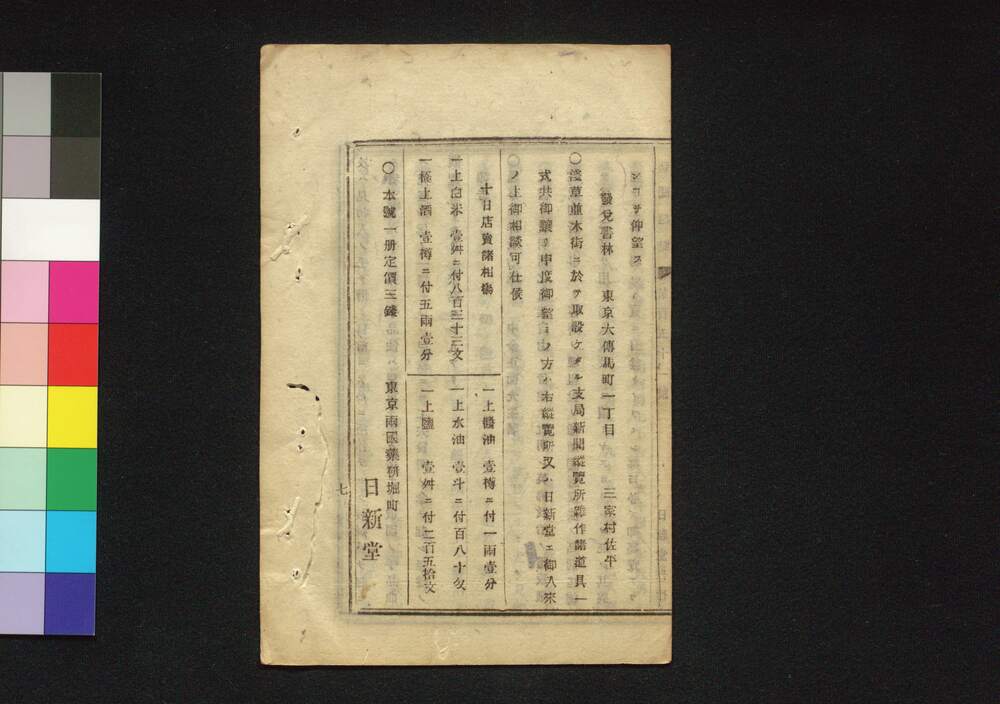 ンコヲ仰望ス
發兌書林 東京大傳馬町一丁目 三家村佐平
〇淺草並木街ニ於テ取設ケタル支局新聞縱覽所雜作諸道具一
式共御讓リ申度御望ミノ方ハ右縱覽所又ハ日新堂ニ御入來
ノ上御相談可仕候
十日店賣諸相塲
一上白米 壹舛ニ付八百三十三文
一極上酒 壹樽ニ付五兩壹分
一上醬油 壹樽ニ付一兩壹分
一上水油 壹斗ニ付百八十匁
一上鹽 壹舛ニ付二百五拾文
〇本號一册定價三錢 東京兩國藥硏堀町
日新堂
七